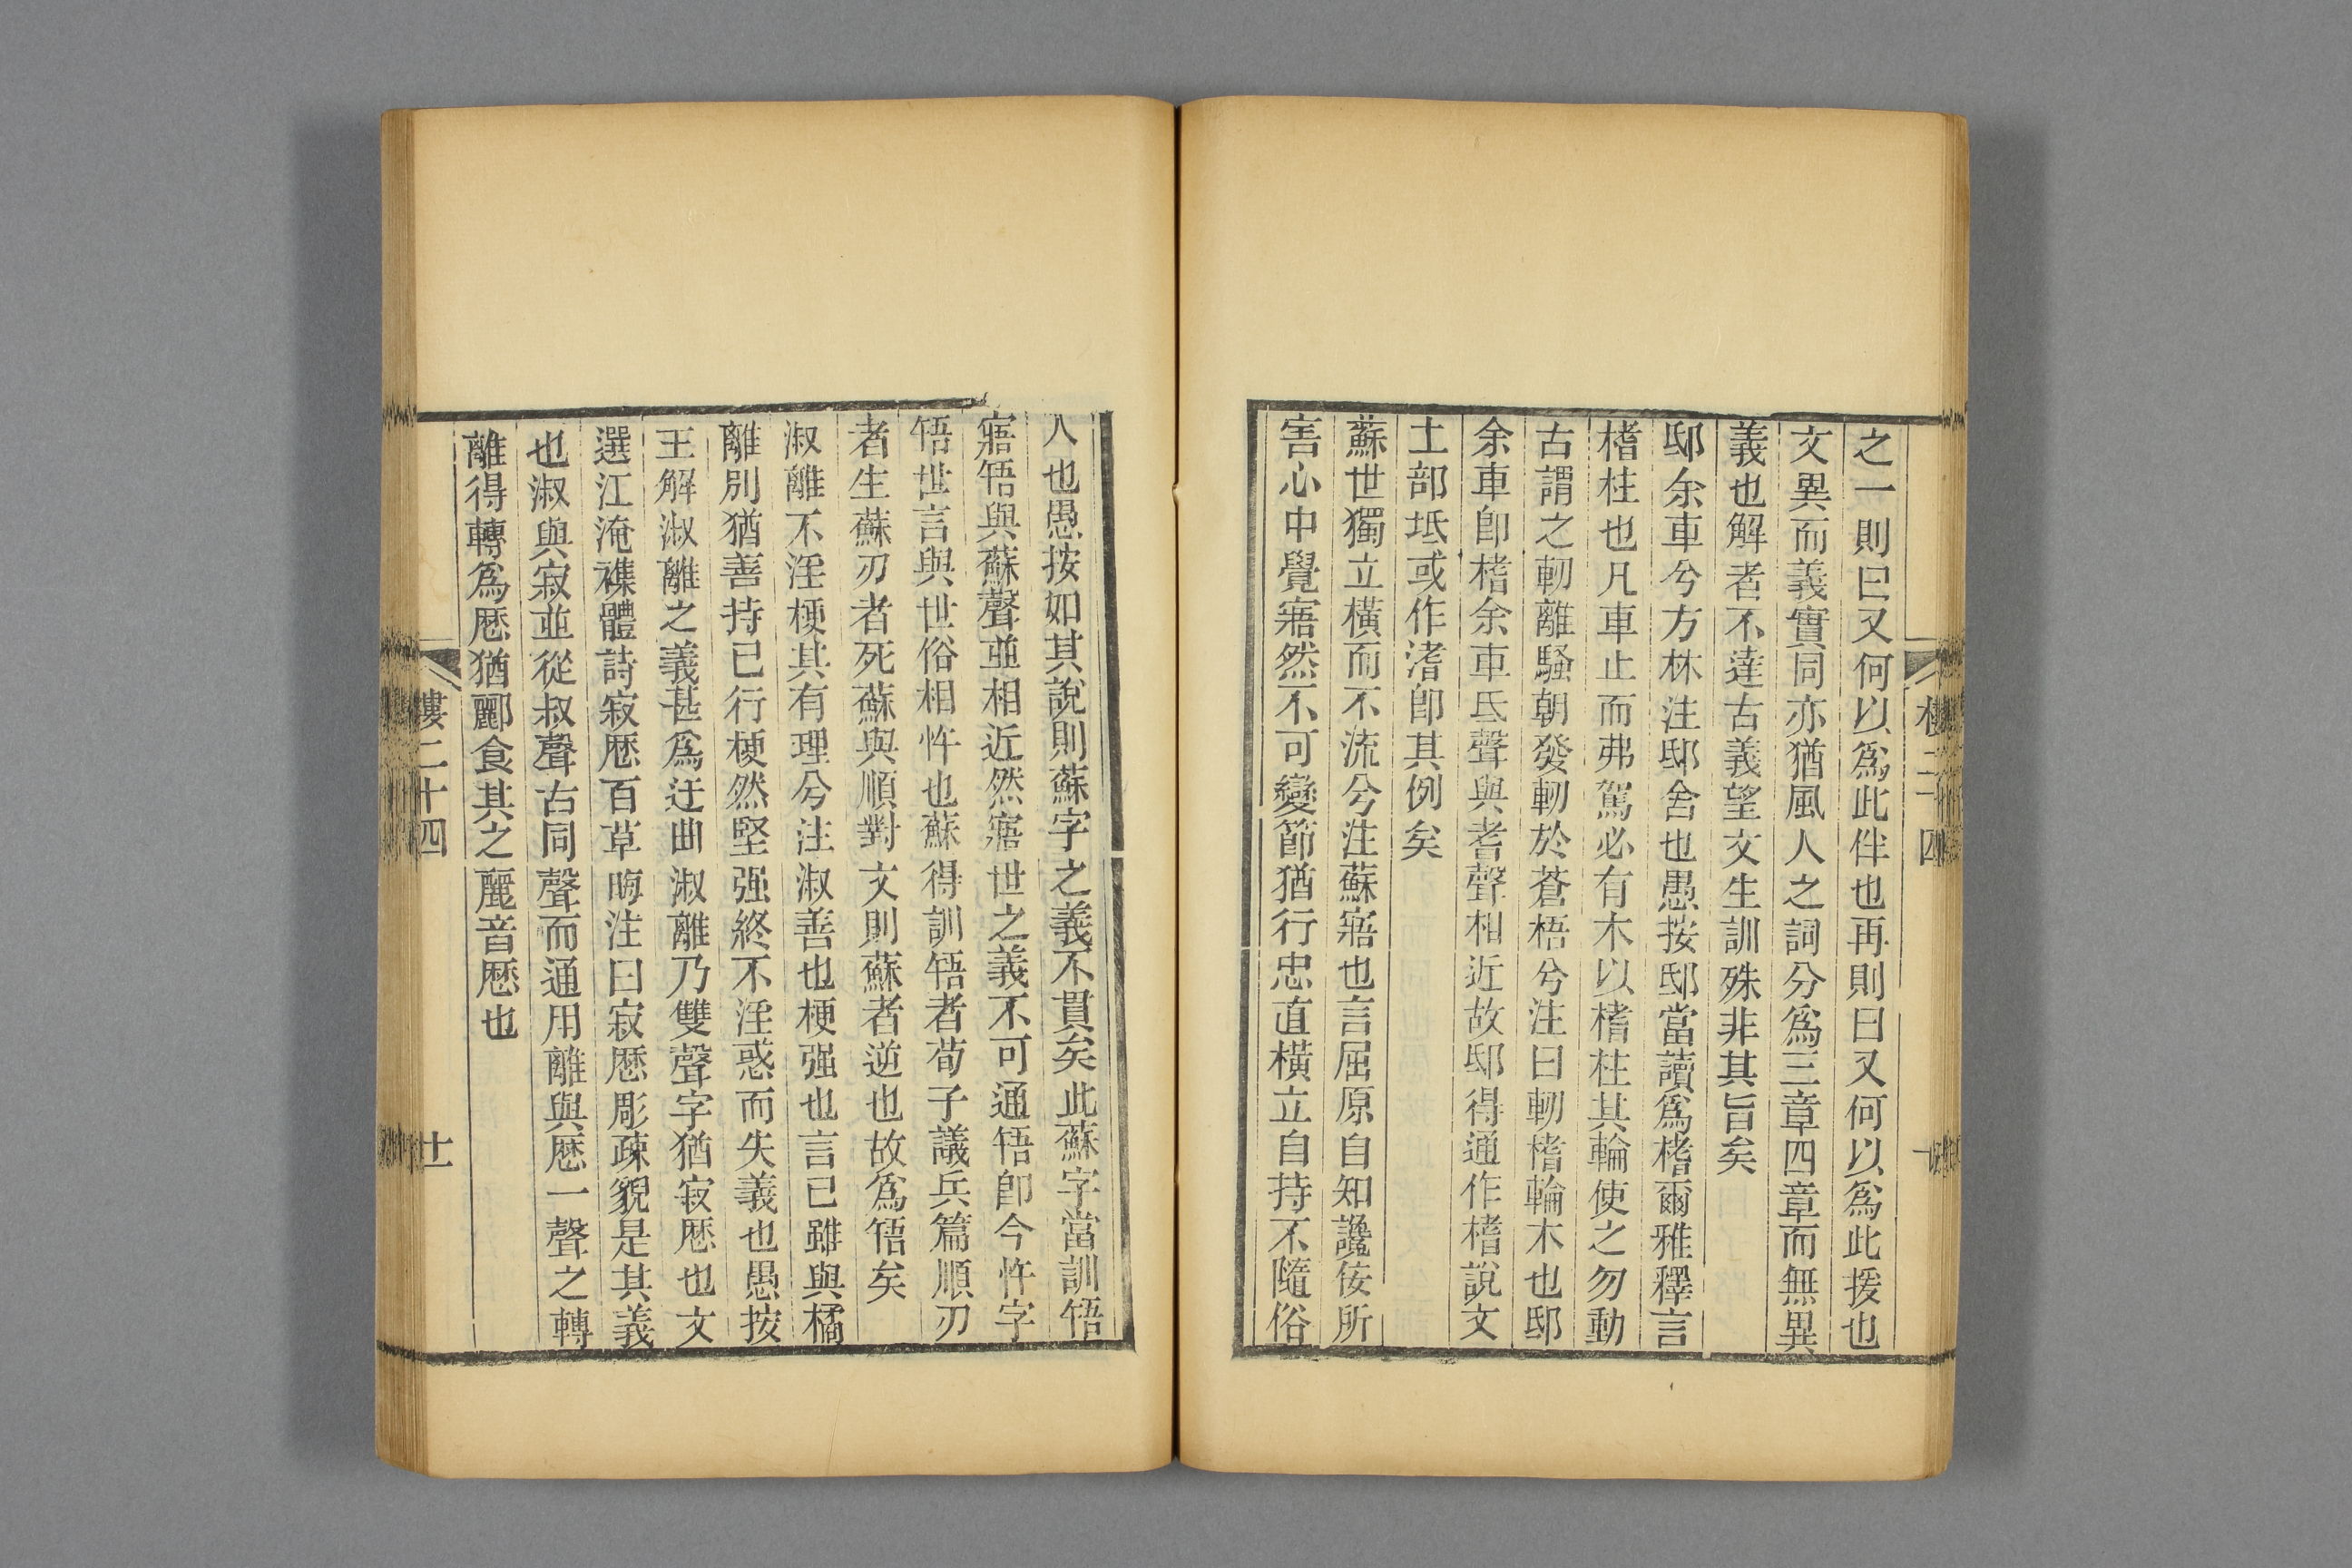 之一則曰又何以爲此伴也再則曰又何以爲此援也
文異而義實同亦猶風人之詞分爲三章四章而無異
義也解者不達古義望文生訓殊非其旨矣
邸余車兮方林注邸舍也愚按邸當讀爲榰爾雅釋言
榰柱也凡車止而弗駕必有木以榰柱其輪使之勿動
古謂之軔離騷朝發軔於蒼梧兮注曰軔榰輪木也邸
余車卽榰余車氐聲與耆聲相近故邸得通作榰說文
土部坻或作渚卽其例矣
蘇世獨立橫而不流兮注蘇寤也言屈原自知讒佞所
害心中覺寤然不可變節猶行忠直橫立自持不隨俗
人也愚按如其說則蘇字之義不貫矣此蘇字當訓啎
寤啎與蘇聲並相近然寤世之義不可通啎卽今忤字
啎世言與世俗相忤也蘇得訓啎者荀子議兵篇順刃
者生蘇刃者死蘇與順對文則蘇者逆也故爲啎矣
淑離不淫梗其有理兮注淑善也梗强也言己雖與橘
離別猶善持已行梗然堅强終不淫惑而失義也愚按
王解淑離之義甚爲迂曲淑離乃雙聲字猶寂歷也文
選江淹襍體詩寂歷百草晦注曰寂歷彫疎貌是其義
也淑與寂並從叔聲古同聲而通用離與歷一聲之轉
離得轉爲歷猶酈食其之麗音歷也
樓二十四
十一